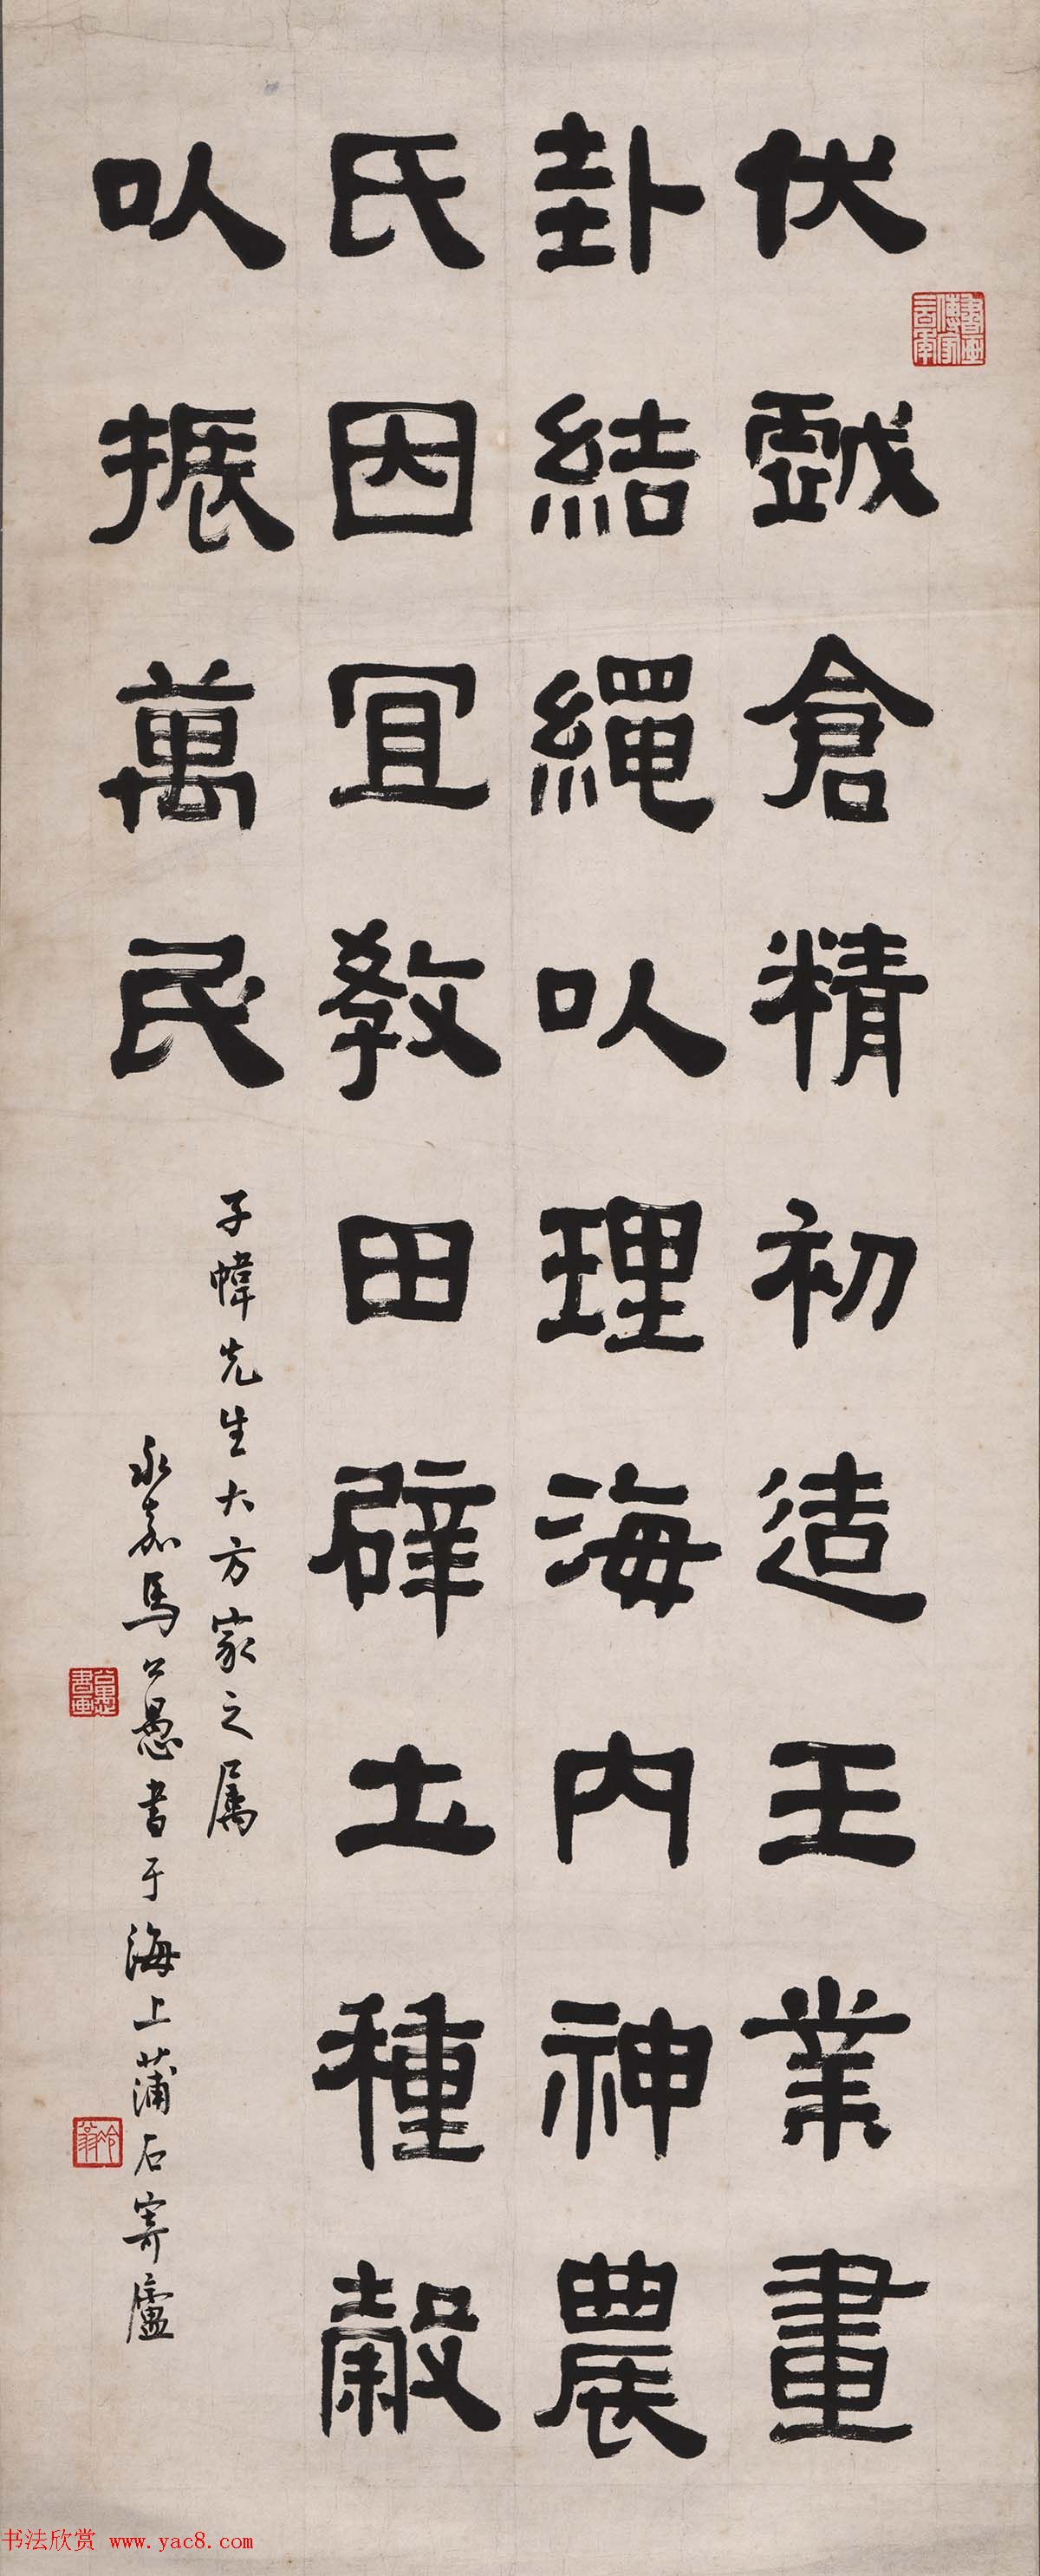 伏戲倉精初造王業畫
卦結繩以理海內神農
氏因宜教田辟土種穀
以振萬民
子幃先生大方家之属
永嘉馬公愚書于海上蒲石寄廬
公愚書画
書畫傳家
书法欣赏 www.yac8.com